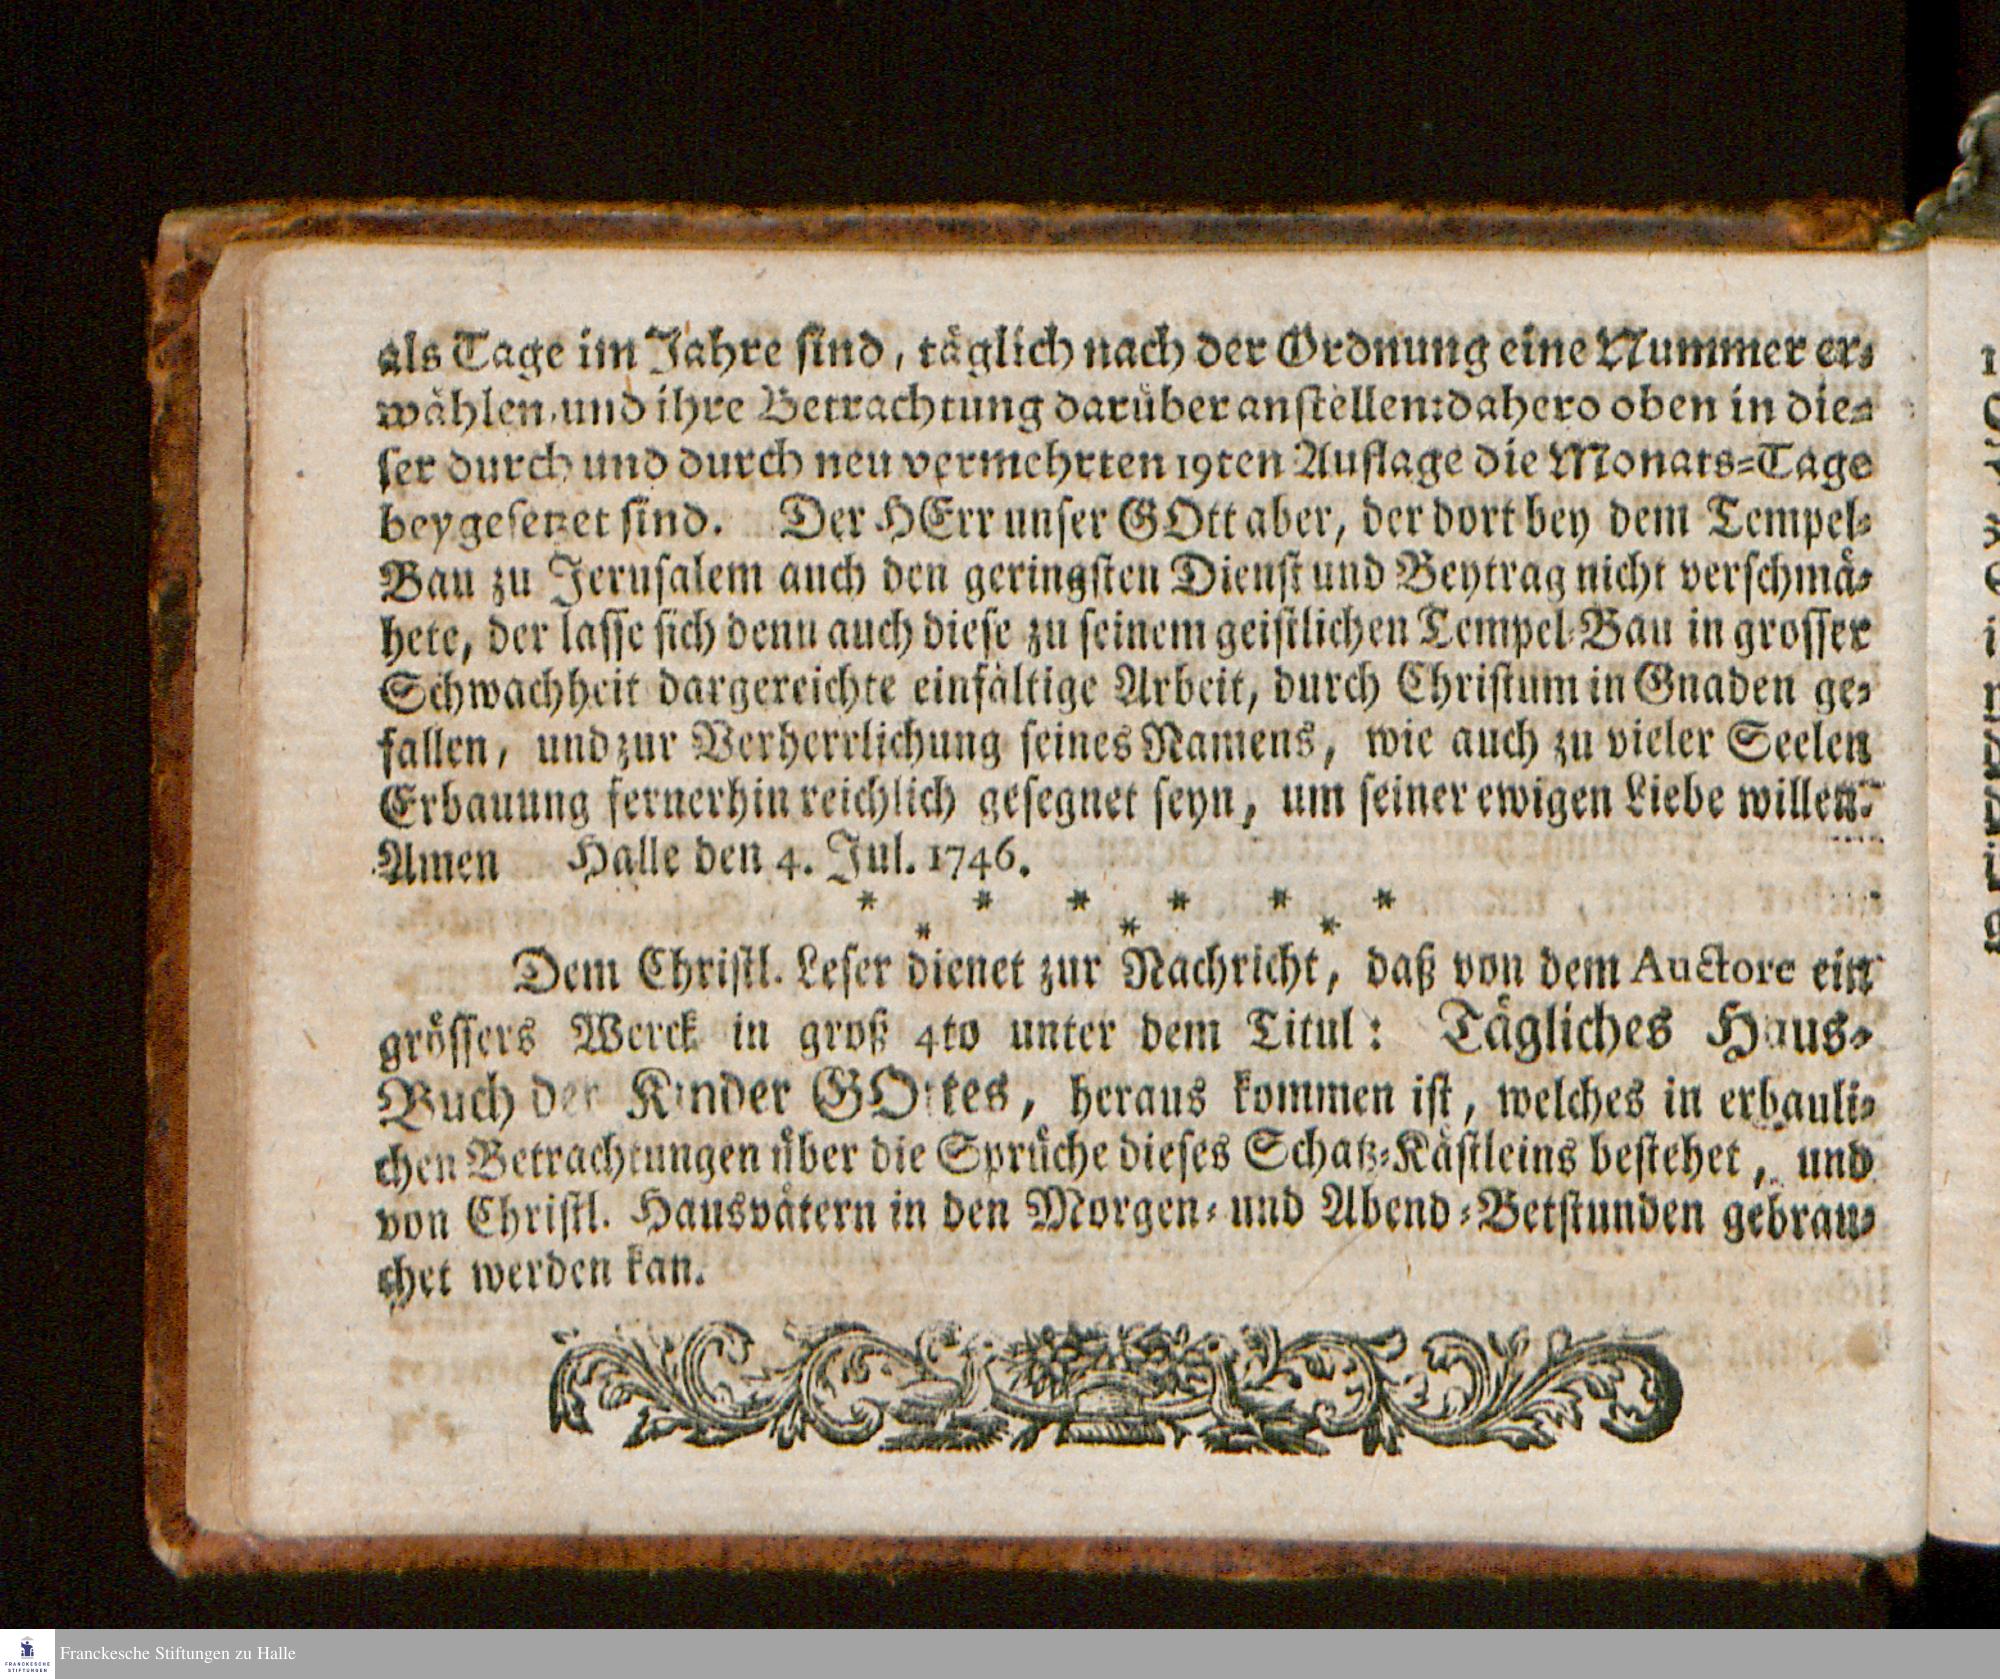 als Tage im Jahre sind, täglich nach der Ordnung eine Nummer er-
wählen, und ihre Betrachtung darüber anstellen: dahero oben in die-
ser durch und durch neu vermehrten 19ten Auflage die Monats-Tage
beygesetzet sind. Der HErr unser GOtt aber, der dort bey dem Tempel-
Bau zu Jerusalem auch den geringsten Dienst und Beytrag nicht verschmä-
hete, der lasse sich denn auch diese zu seinem geistlichen Tempel-Bau in grosser
Schwachheit dargereichte einfältige Arbeit, durch Christum in Gnaden ge-
fallen, und zur Verherrlichung seines Namens, wie auch zu vieler Seelen
Erbauung fernerhin reichlich gesegnet seyn, um seiner ewigen Liebe willen.
Amen Halle den 4. Jul. 1746.
* * * * * *
* * *
Dem Christl. Leser dienet zur Nachricht, daß von dem Auctore ein
grössers Werck in groß 4to unter dem Titul: Tägliches Haus-
Buch der Kinder GOttes, heraus kommen ist, welches in erbauli-
chen Betrachtungen über die Sprüche dieses Schatz-Kästleins bestehet, und
von Christl. Hausvätern in den Morgen- und Abend-Betstunden gebrau-
chet werden kan.
FRANCKESCHE
STIFTUNGEN
Franckesche Stiftungen zu Halle